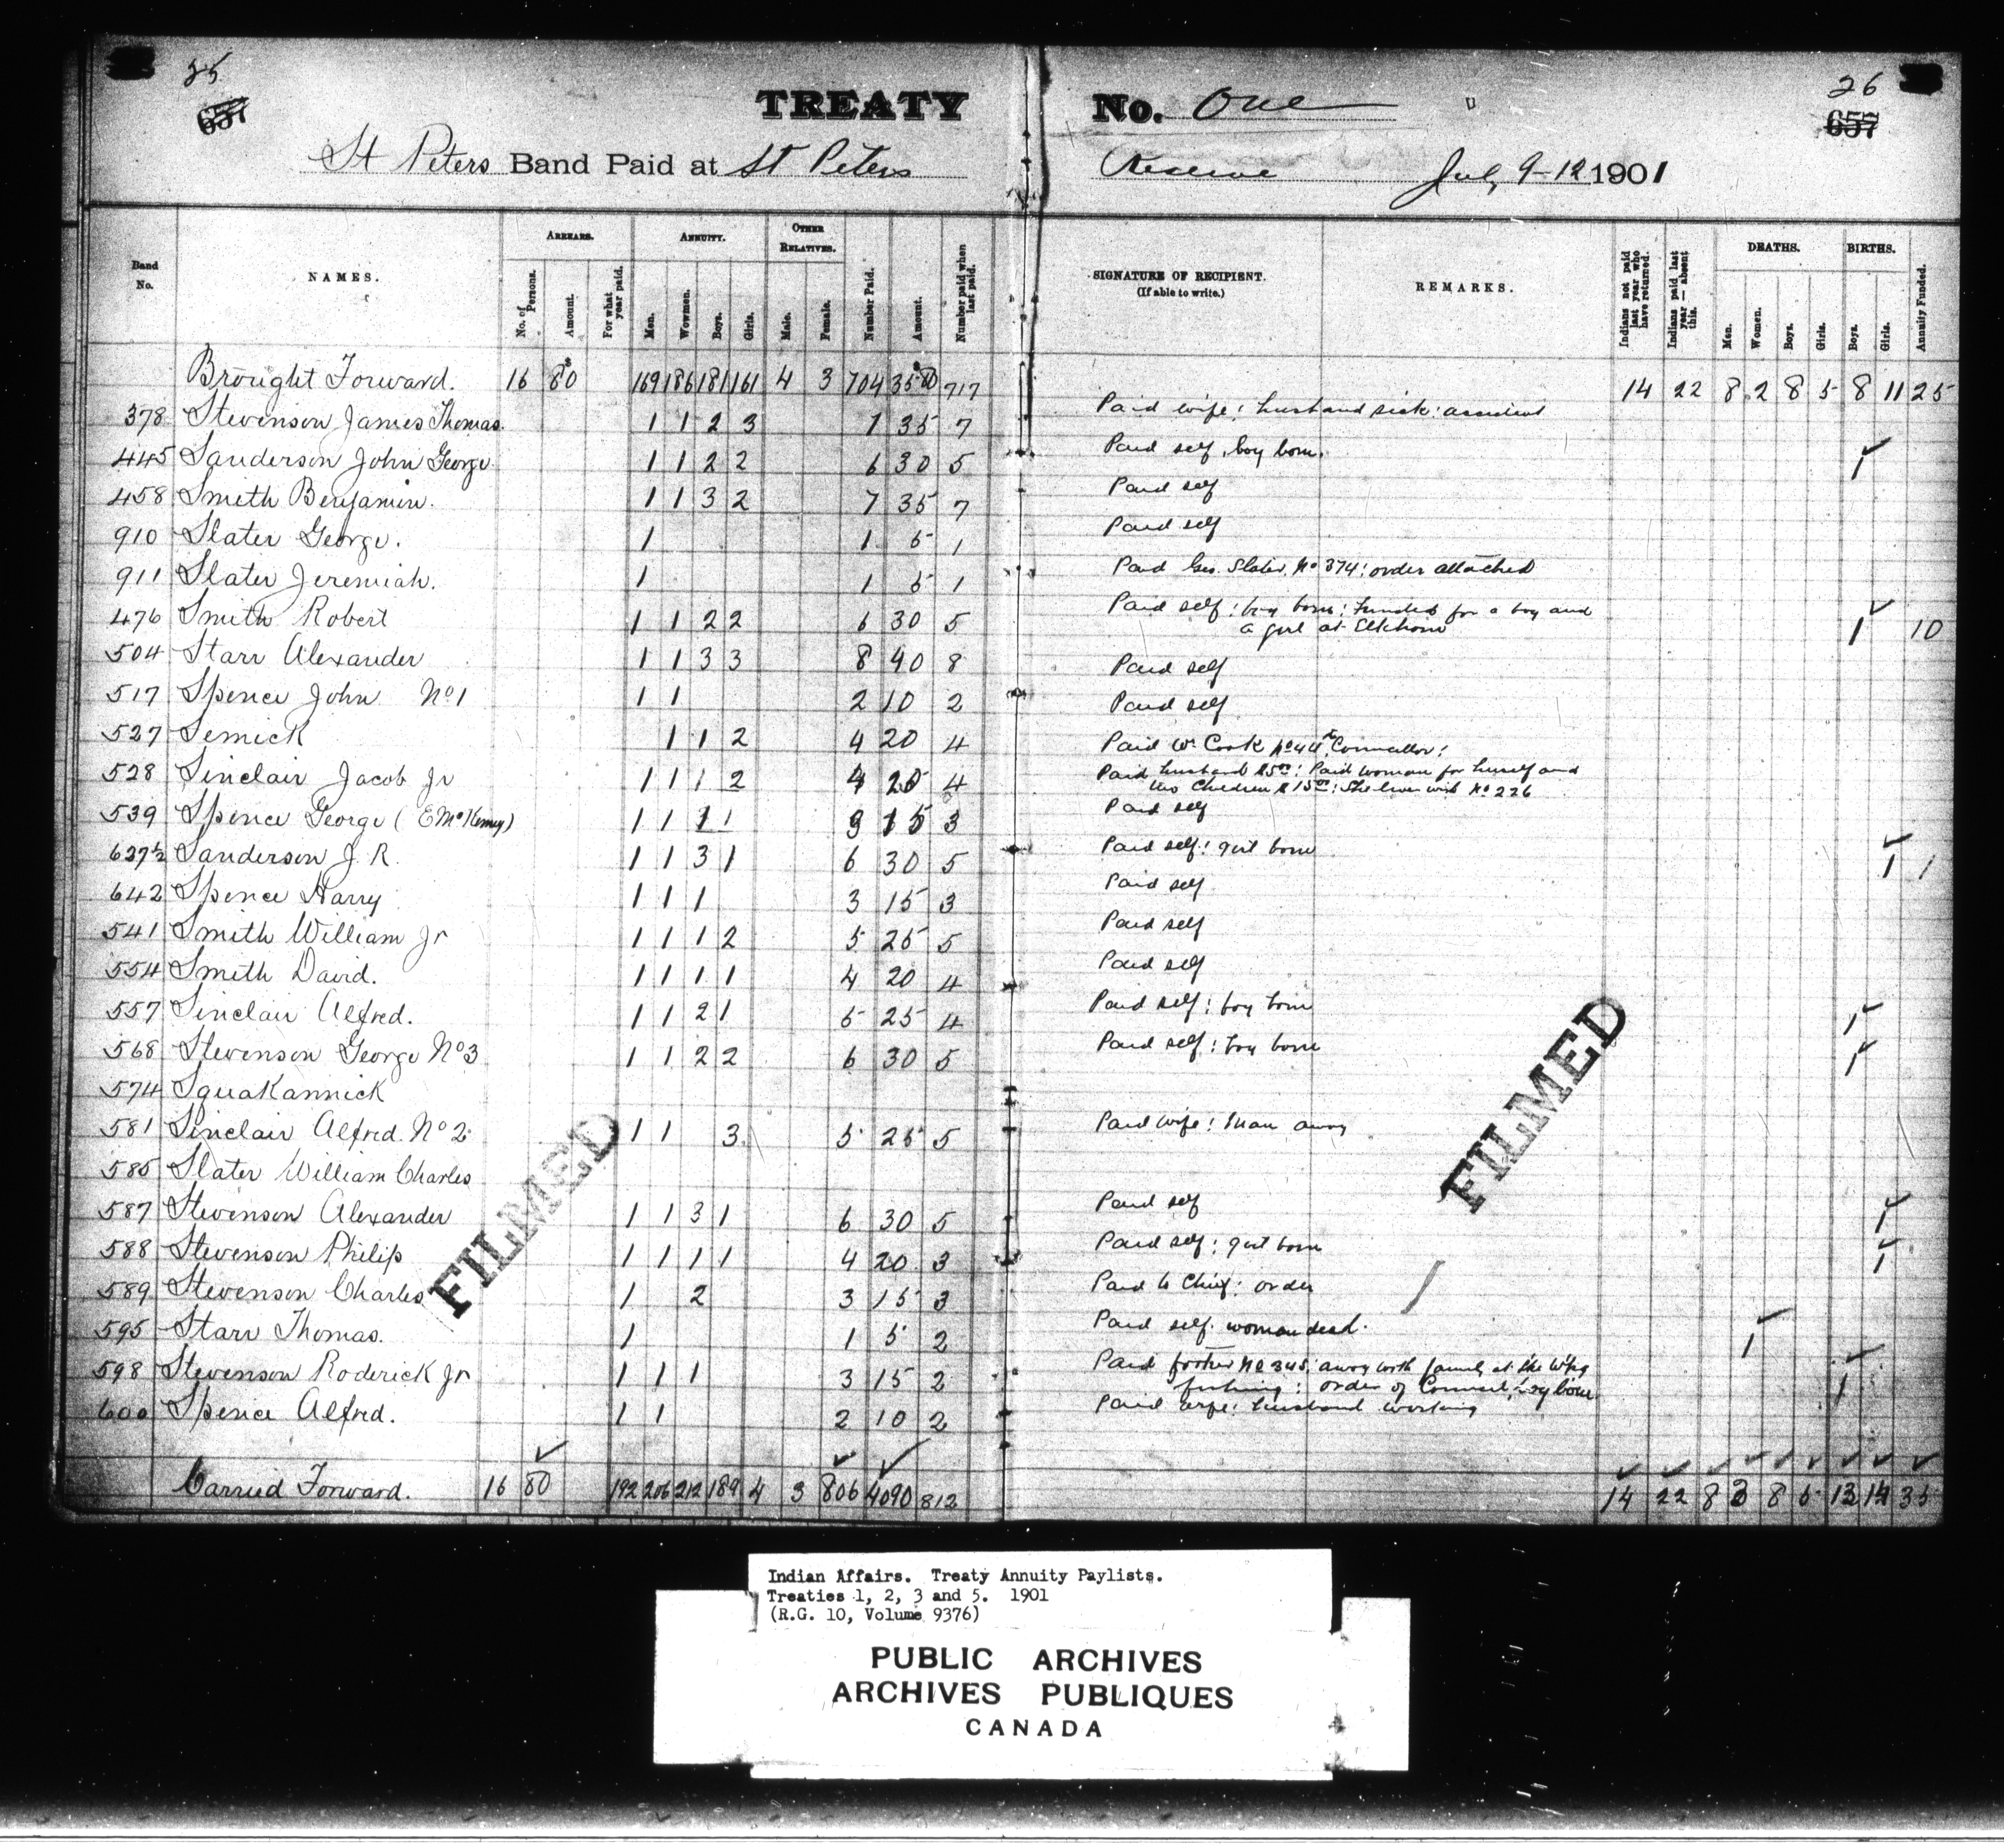 25
657
TREATY No. One
26
657
St Peters Band Paid at St Peters Reserve July 9-12 1901
Band No.
NAMES.
ARREARS.
No. of Persons.
Amount.
For what year paid.
ANNUITY.
Men.
Wowmen.
Boys.
Girls.
OTHER RELATIVES.
Male.
Female.
Number Paid.
Amount.
Number paid when last paid.
SIGNATURE OF RECIPIENT.
(If able to write.)
REMARKS.
Indians not paid last year who have returned.
Indians paid last year — absent this.
DEATHS.
Men.
Women.
Boys.
Girls.
BIRTHS.
Boys.
Girls.
Annuity Funded.
Brought Forward. 16 80 169 186 181 161 4 3 704 3580 717 14 22 8 2 8 5 8 11 25
378 Stevenson James Thomas. 1 1 2 3 7 35 7 Paid wife: husband sick:
445 Sanderson John George. 1 1 2 2 6 30 5 Paid self, boy born. 1
458 Smith Benjamin. 1 1 3 2 7 35 7 Paid self
910 Slater George. 1 1 5 1 Paid self
911 Slater Jeremiah. 1 1 5 1 Paid Geo. Slater, No 374: order attached
476 Smith Robert 1 1 2 2 6 30 5 Paid self: boy born: funded for a boy and
a girl at Elkhorn 1 10
504 Starr Alexander 1 1 3 3 8 40 8 Paid self
517 Spence John No 1 1 1 2 10 2 Paid self
527 Semick 1 1 2 4 20 4 Paid Wm Cook Councillor:
528 Sinclair Jacob Jr 1 1 1 2 4 20 4 Paid husband $5.00: Paid woman for herself and
two children $15.00: She lives with No 226
539 Spence George (E McKenney) 1 1 1 1 3 15 3 Paid self
637½ Sanderson J. R. 1 1 3 1 6 30 5 Paid self: girl born 1 1
642 Spence Harry 1 1 1 3 15 3 Paid self
541 Smith William Jr 1 1 1 2 5 25 5 Paid self
554 Smith David. 1 1 1 1 4 20 4 Paid self
557 Sinclair Alfred. 1 1 2 1 5 25 4 Paid self: boy born 1
568 Stevenson George No 3 1 1 2 2 6 30 5 Paid self: boy born 1
574 Squakannick
581 Sinclair Alfred. No 2. 1 1 3 5 25 5 Paid wife: man away
585 Slater William Charles
587 Stevenson Alexander 1 1 3 1 6 30 5 Paid self 1
588 Stevenson Philip 1 1 1 1 4 20 3 Paid self: girl born 1
589 Stevenson Charles 1 2 3 15 3 Paid to Chief: order
595 Starr Thomas. 1 1 5 2 Paid self. woman dead. 1
598 Stevenson Roderick Jr 1 1 1 3 15 2 Paid father No 345, away with family at
fishing: order of Council, boy born 1
600 Spence Alfred. 1 1 2 10 2 Paid wife: husband working
Carried Forward. 16 80 192 206 212 189 4 3 806 4090 812 14 22 8 3 8 5 13 14 35
FILMED
FILMED
Indian Affairs. Treaty Annuity Paylists.
Treaties 1, 2, 3 and 5. 1901
(R.G. 10, Volume 9376)
PUBLIC ARCHIVES
ARCHIVES PUBLIQUES
CANADA